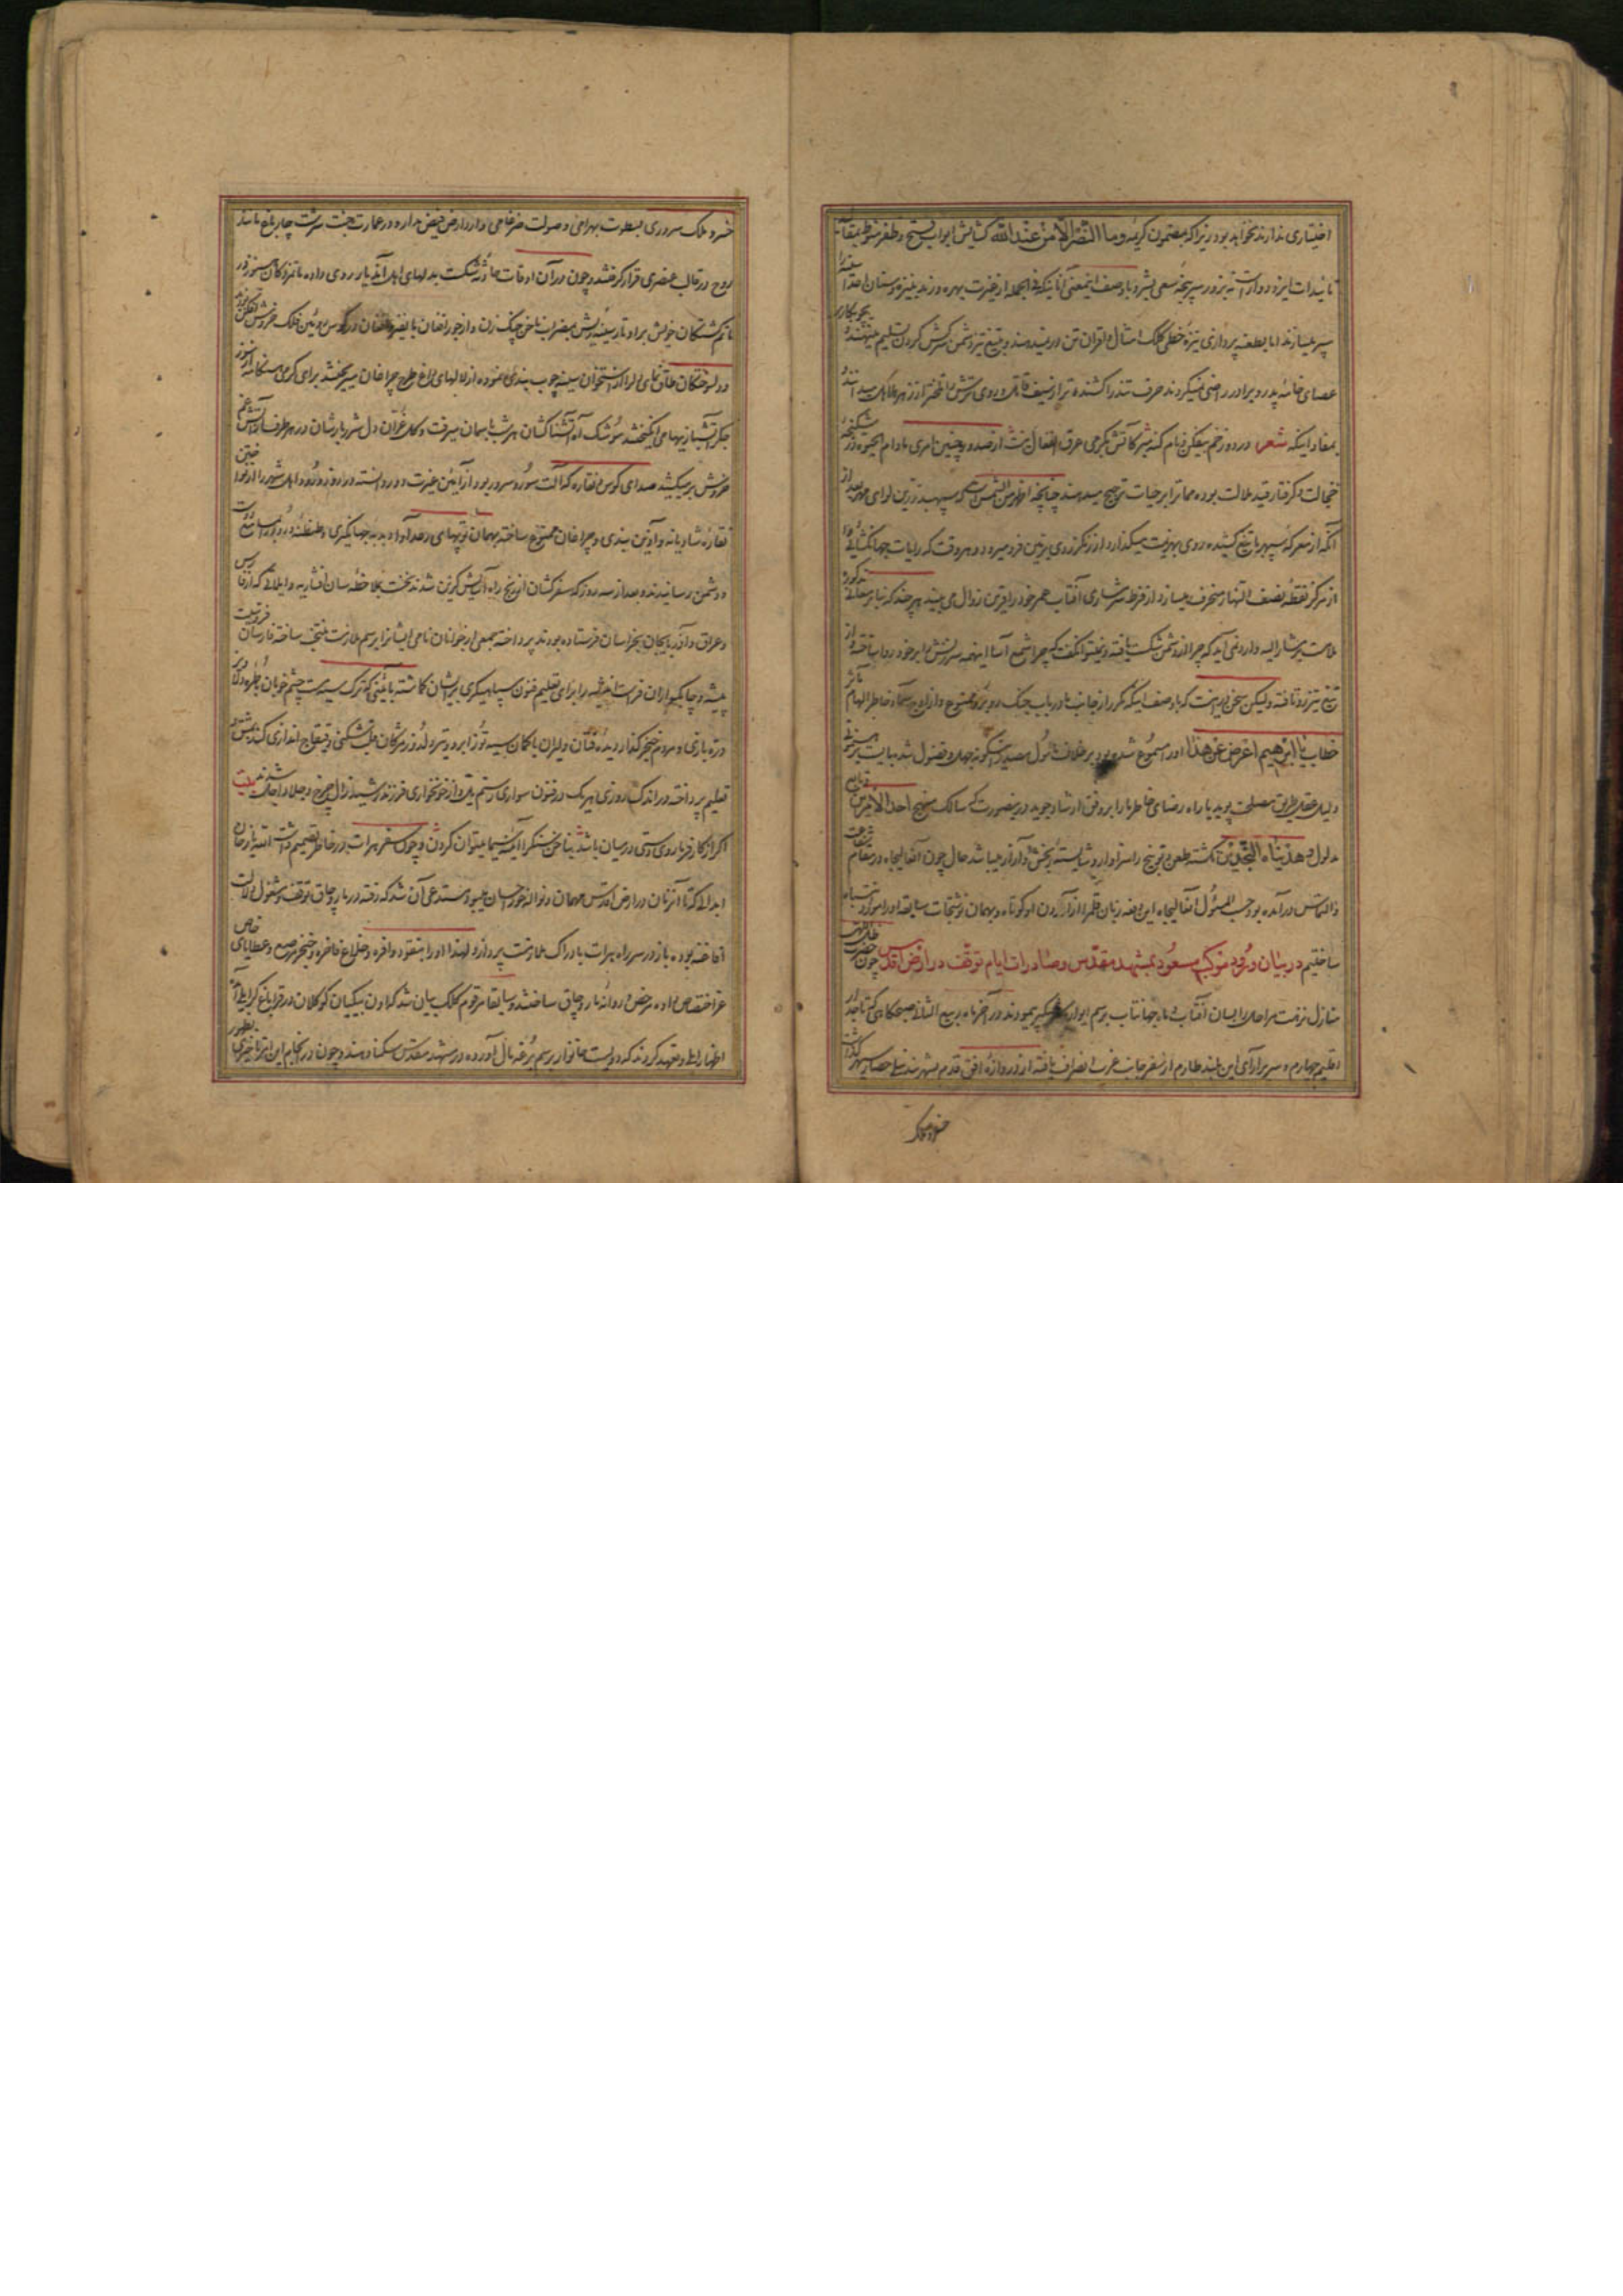 اختیاری ندارند نخواهد بود زیرا که مضمون کریمه وما النصر الا من عند الله کشایش ابواب فتح و ظفر منوط بمقالید
تائیدات ایزد داور است نه بزور سرپنجه سعی بشر و با وصف اینمعنی آنانیکه فی الجمله از غیرت بهره ورند بنیزه وسنان اعدا سینه
سپر میسازند اما بطعنه پردازی نیزه خطی کلک امثال و اقران تن در نمیدهند و بتیغ تیز دشمن سرکش گردن تسلیم مینهند
عصای خامه پدر و برادر راضی نمیکردند حرف تند را کشنده تر از سیف قاتل و روی ترش را تلختر از زهر هلاهل میدانند
بمفاد اینکه شعر در دوزخم بیفکن و نام گنه مبر کاتش بگرمی عرق انفعال نیست از صدور چنین امری مادام الحیوة در شکنجه
خجالت و گرفتار قید ملالت بوده ممات را بر حیات ترجیح میدهند چنانچه اظهر من الشمس است که سپهبد زرین لوای مهر بعد از
آنکه از معرکه سپهر با تیغ کشیده روی بهزیمت میگذارد از زنگ زردی بزمین فرو میرود و هر وقت که رایات جهانگشائی را
از مرکز نقطه نصف النهار منحرف میسازد از فرط شرمساری آفتاب عمر خود را قرین زوال می بیند هر چند که بنابر معانی مذکوره
ملامت بر مشار الیه وارد نمی آید که چرا از دشمن شکست یافته و نمیتوان گفت که چرا شمع آسا اینهمه سرزنش را بر خود روا ساخته و از
تیغ تیز رو تافته ولیکن سخن در اینست که با وصف اینکه مکرر از جانب ما در باب جنگ روبرو ممنوع و از اوج سماء خاطر الهام تأثر
خطاب یا ابرهیم اعرض عن هذا او را مسموع شده بود بر خلاف مأمول مصدر اینگونه جهل و فضول شد بایست بر هنمائی
دلیل عقل بطریق مصلحت پوید یا راه رضای خاطر ما را بر وفق ارشاد جوید درینصورت که سالک منهج احد الامرین
مدلول وهدیناه النجدین نگشته طعن و توبیخ را سزاوار و شایسته رنجش و آزار میباشد حال چون آنعالیجاه در مقام شفاعت
و التماس درآمده بود حسب المسئول آنعالیجاه این دفعه زبان قلم را از آزردن او کوتاه و بهمان نوشتجات سابقه او را مورد انتباه
ساختیم در بیان ورود موکب مسعود بمشهد مقدس وصادرات ایام توقف در ارض اقدس چون حضرت ظل اللهی
منازل نزهت مراحل را بسان آفتاب و ماه جهانتاب برسم ایوار و شبگیر پیمودند در آخر ماه ربیع الثانی صبحگاهی که تاجدار
اقلیم چهارم و سریر آرای این بلند طارم از سفر جانب غرب انصراف یافته از دروازه افق قدم بشهربند نیلی حصار سپهر گذاشت
خسرو ملک
خسرو ملک سروری بسطوت بهرامی و صولت ضرغامی وارد ارض فیض مدار و در عمارت جنت سرشت چارباغ مانند
روح در قالب عنصری قرار گرفتند و چون در آن اوقات حادثه شکست بدلهای اهل آندیار روی داده ماتمزدگان سینه سوز در
ماتم گشتگان خویش بر اوتار سینه ریش بمضراب ناخن چنگ زن و از جور افغان با نفیر و افغان در کوس روئین فلک خروش افکن بودند
و دلسوختگان طاق نمای دل را از استخوان سینه چوب بندی نموده از لالهای داغ طرح چراغان میریختند برای گرمی هنگامه از سوز
جگر آتشبازیها می انگیختند موشک آه آتشناکشان هر شب بآسمان میرفت و گل غران دل شرربارشان در هر طرف از آتش غم
خروش بر میکشید صدای کوس و نقاره که آلت سور و سرور بود از آئین غیرت دور دانسته در روز ورود اهل شهر را از نواختن
نقاره شادیانه و آئین بندی و چراغان ممنوع ساخته بهمان توپهای رعد آوا دبدبه جهانگیری و طنطنه ورود را بمسامع دوست
و دشمن رسانیدند و بعد از سه روز که سفرکشان از رنج راه آسایش گزین شدند نخست بملاحظه سان افشاریه و ایلاتی که از فارس
و عراق و آذربایجان بخراسان فرستاده بودند پرداخته جمعی از جوانان نامی ایشانرا برسم ملازمت منتخب ساخته فارسان فروسیت
پیشه و چابکسواران فراست اندیشه را برای تعلیم فنون سپاهیگری بر ایشان گماشته بآئینی که ترک سیه مست چشم خوبان بطره
دره بازی و مردم خنجر گذار دیده فتان دلیران با کمان سیه توز ابرو و تیر دلدوز مژگان قلب شکنی و قیقاج اندازی کند بمشق
تعلیم پرداخته در اندک روزی هر یک در فنون سواری رستم یل و از خونخواری فرزند رشید زال چرخ و جلاد اجل شدند بیت
اگر از کارفرما روی دستی در میان باشد بناخن سنگ را آئینه سیما میتوان کردن و چون سفر هرات در خاطر تصمیم داشت الله یار خان
ابدالی که تا آنزمان در ارض اقدس مهمان و نواله خور احسان میبود مستدعی آن شد که رفته در ماروچاق توقف و مشغول دلالت
افاغنه بوده باز در سر راه هرات بادراک ملازمت پردازد لهذا او را بنقود وافره و خلاع فاخره و خنجر مرصع و عطایای خاص
عز اختصاص داده مرخص و روانه ماروچاق ساختند و سابقا مرقوم کلک بیان شد که اون بیگیان کوکلان در قرا باغ کرایلی آمده
اظهار ایلی و تعهد کردند که دویست خانوار برسم نوغان آورده در مشهد مقدس سکنا دهند و چون در انجام این امر تاخیر بظهور